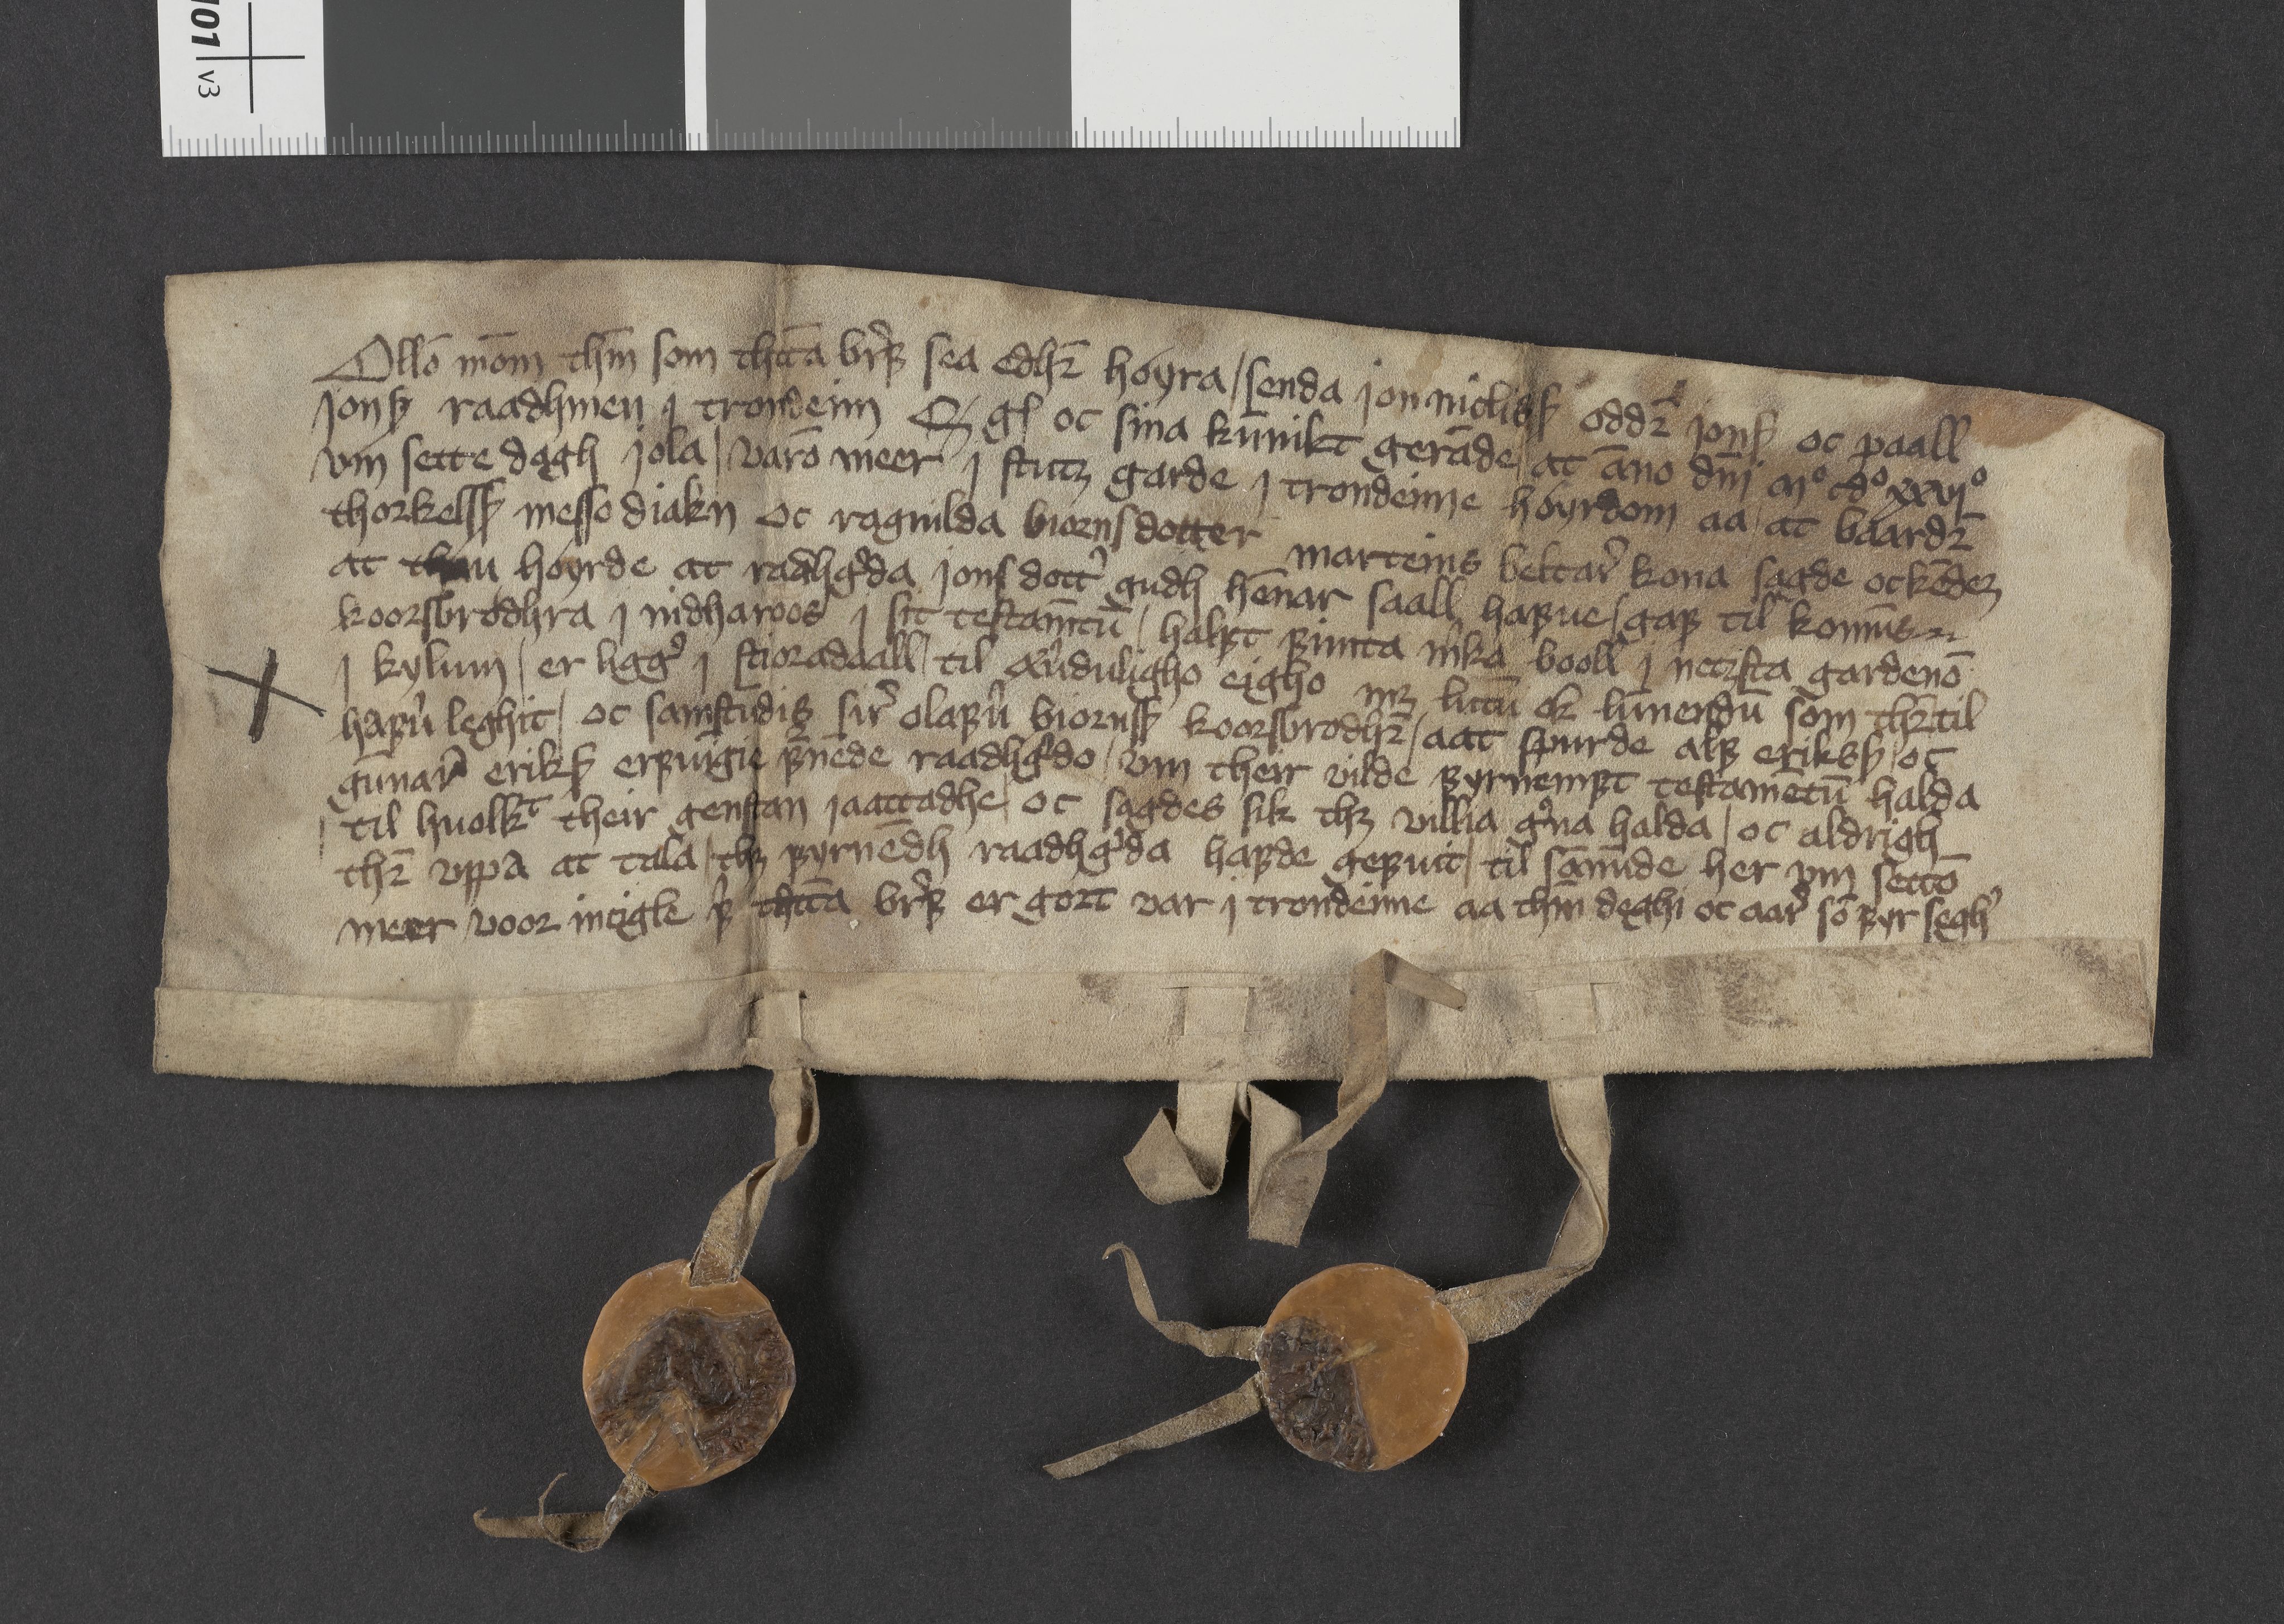 101 v3
Ollō mōm thm̄ som thētta br̄f sea edhr̄ høyra / senda jon niclisß oddr̄ jonß oc paall
jonß raadhmen j trondeim Q gß oc sina kūnikt gerāde at āno dn̄i mº cdº xxvijº
vm sette dagh jola / varō meer j stutz garde j trondeime høyrdom aa / at baardr̄
thorkelsß messo diakn oc ragnilda biornsdotter marteins beltar̄ kona sagde oc kēdez
at thau høyrde at radhgᵉda jonsdottᵉ gudh hēnar saall hafue / gaf til komūs
koorsbrødhra j nidharoos j sit testamētū / halft fimta mᵉka booll j netzsta gardenō
j kylum / er liggᵉ j stioradaall / til æuerduligho eigho mz luttū ok lunnendū som thr̄til
hafuᵉ leghit / oc samstudis sirᵉ olafuᵉ biornsß koorsbrodhr̄ / aat spurde alf eriksß / oc
gūnarᵉ eriksß erfuīgie fᵉnēde raadhgᵉdo / vm their vilde fyrnempt testamētū halda
til huolkt their genstan jaattadhe / oc sagdes sik thz villia gᵉna halda / oc aldrigh
thr̄ vppa at tala / thz fyrnēdh raadhgᵉda hafde gefuit / til sāninde her vm settō
meer voor incigle fᵉ thētta br̄f er gort var j trondeime aa thm̄ deghi oc aarᵉ sō fyr seghᵉ